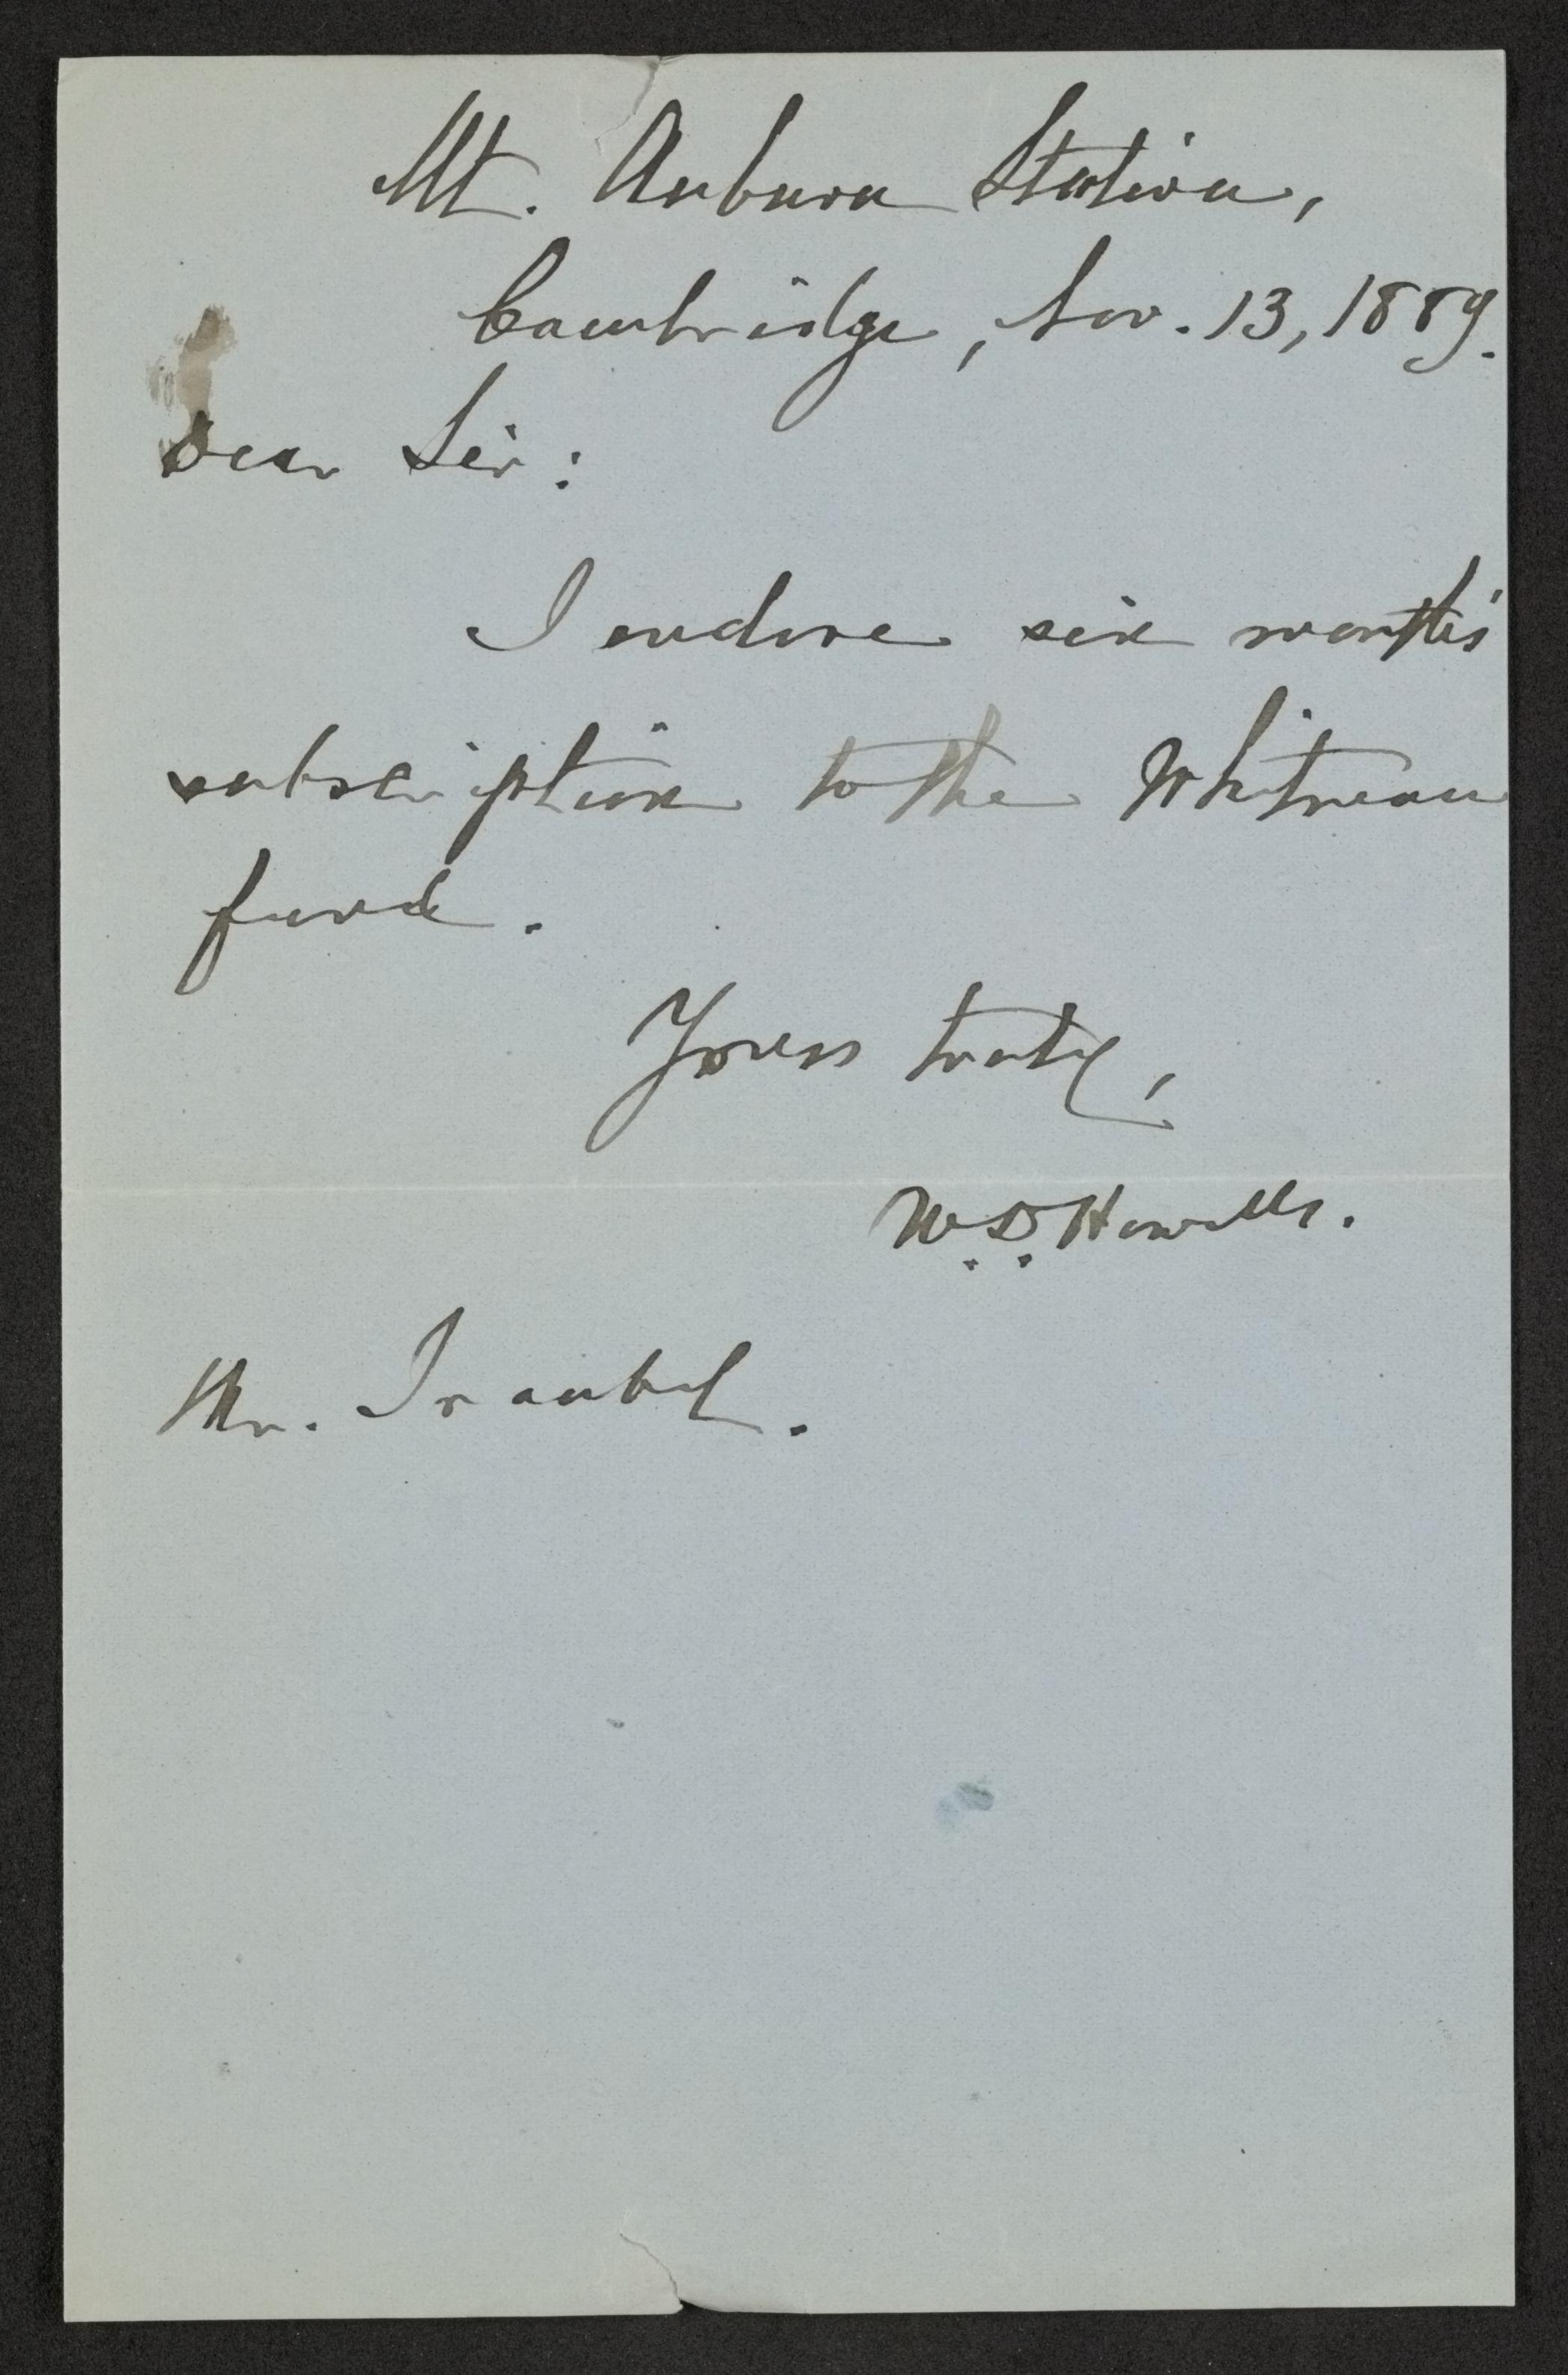 Mt. Auburn Station,
Cambridge, Nov. 13, 1889.
Dear Sir:
I enclose six months'
subscription to the Whitman
fund.
Yours truly,
W. D. Howells.
Mr. Traubel.